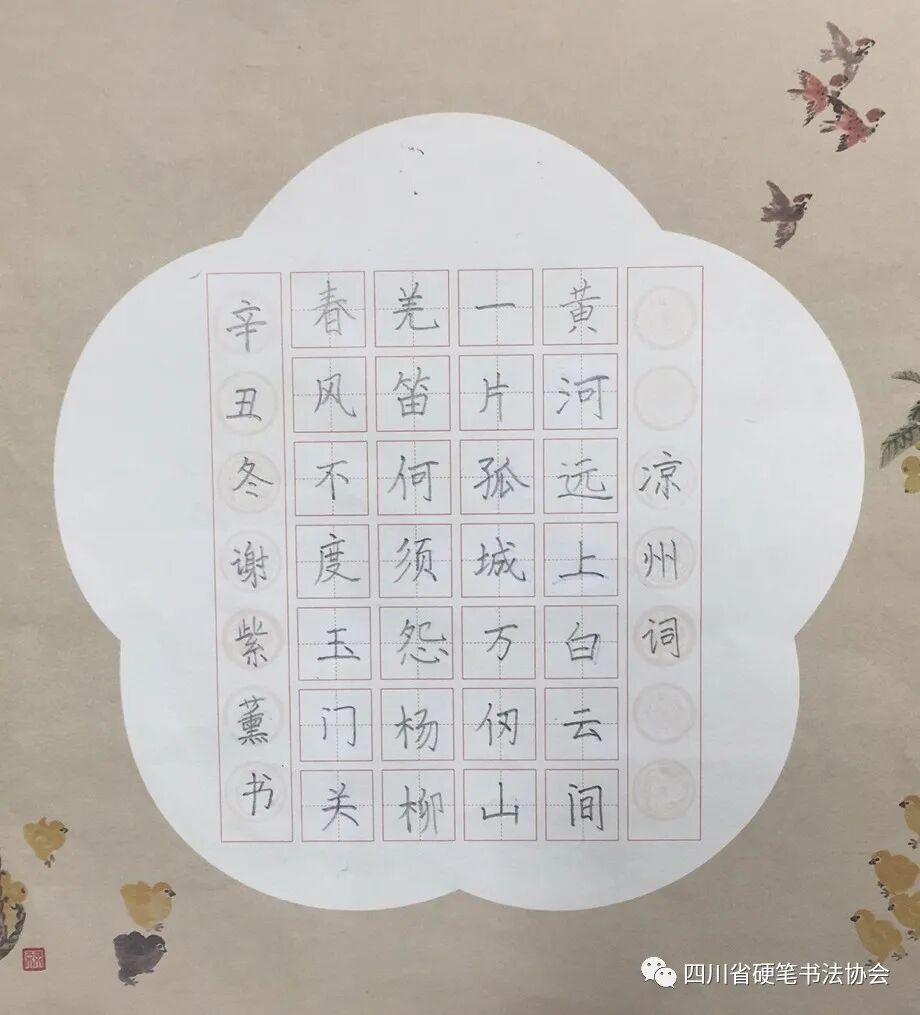 凉州词
黄河远上白云间
一片孤城万仞山
羌笛何须怨杨柳
春风不度玉门关
辛丑冬谢紫薰书
四川省硬笔书法协会